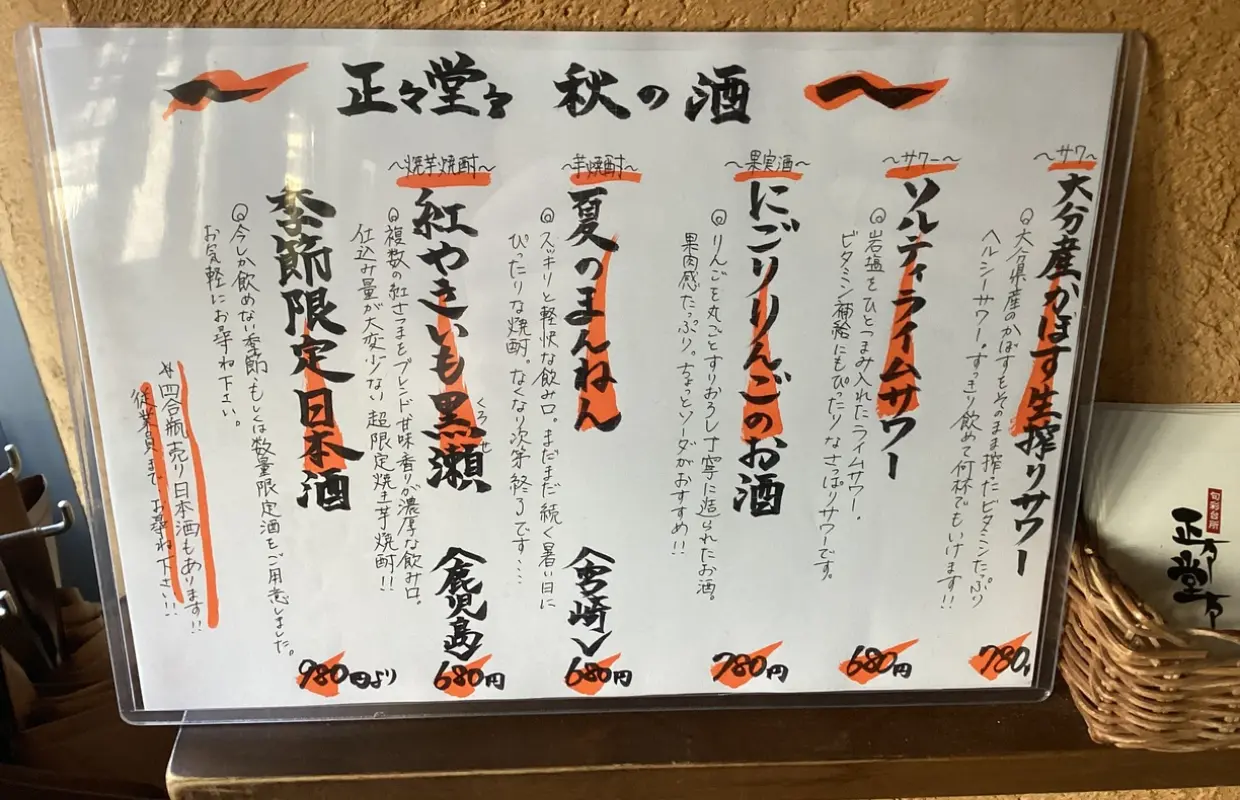 正々堂々 秋の酒
〜サワー〜
大分産かぼす生搾りサワー
◎大分県産のかぼすをそのまま搾ったビタミンたっぷり
ヘルシーサワー。すっきり飲めて何杯でもいけます!!
780円
〜サワー〜
ソルティライムサワー
◎岩塩をひとつまみ入れたライムサワー。
ビタミン補給にもぴったりなさっぱりサワーです。
680円
〜果実酒〜
にごりりんごのお酒
◎りんごを丸ごとすりおろし丁寧に造られたお酒。
果肉感たっぷり。ちょっとソーダがおすすめ!!
780円
〜芋焼酎〜
夏のまんねん
〈宮崎〉
◎スッキリと軽快な飲み口。まだまだ続く暑い日に
ぴったりな焼酎。なくなり次第終了です…
680円
〜焼芋焼酎〜
紅やきいも黒瀬
くろせ
〈鹿児島〉
◎複数の紅さつまをブレンド甘味香りが濃厚な飲み口。
仕込み量が大変少ない超限定焼き芋焼酎!!
680円
季節限定日本酒
◎今しか飲めない季節もしくは数量限定酒をご用意しました。
お気軽にお尋ね下さい。
980円より
※四合瓶売り日本酒もあります!!
従業員までお尋ね下さい!!
旬彩台所
正々堂々